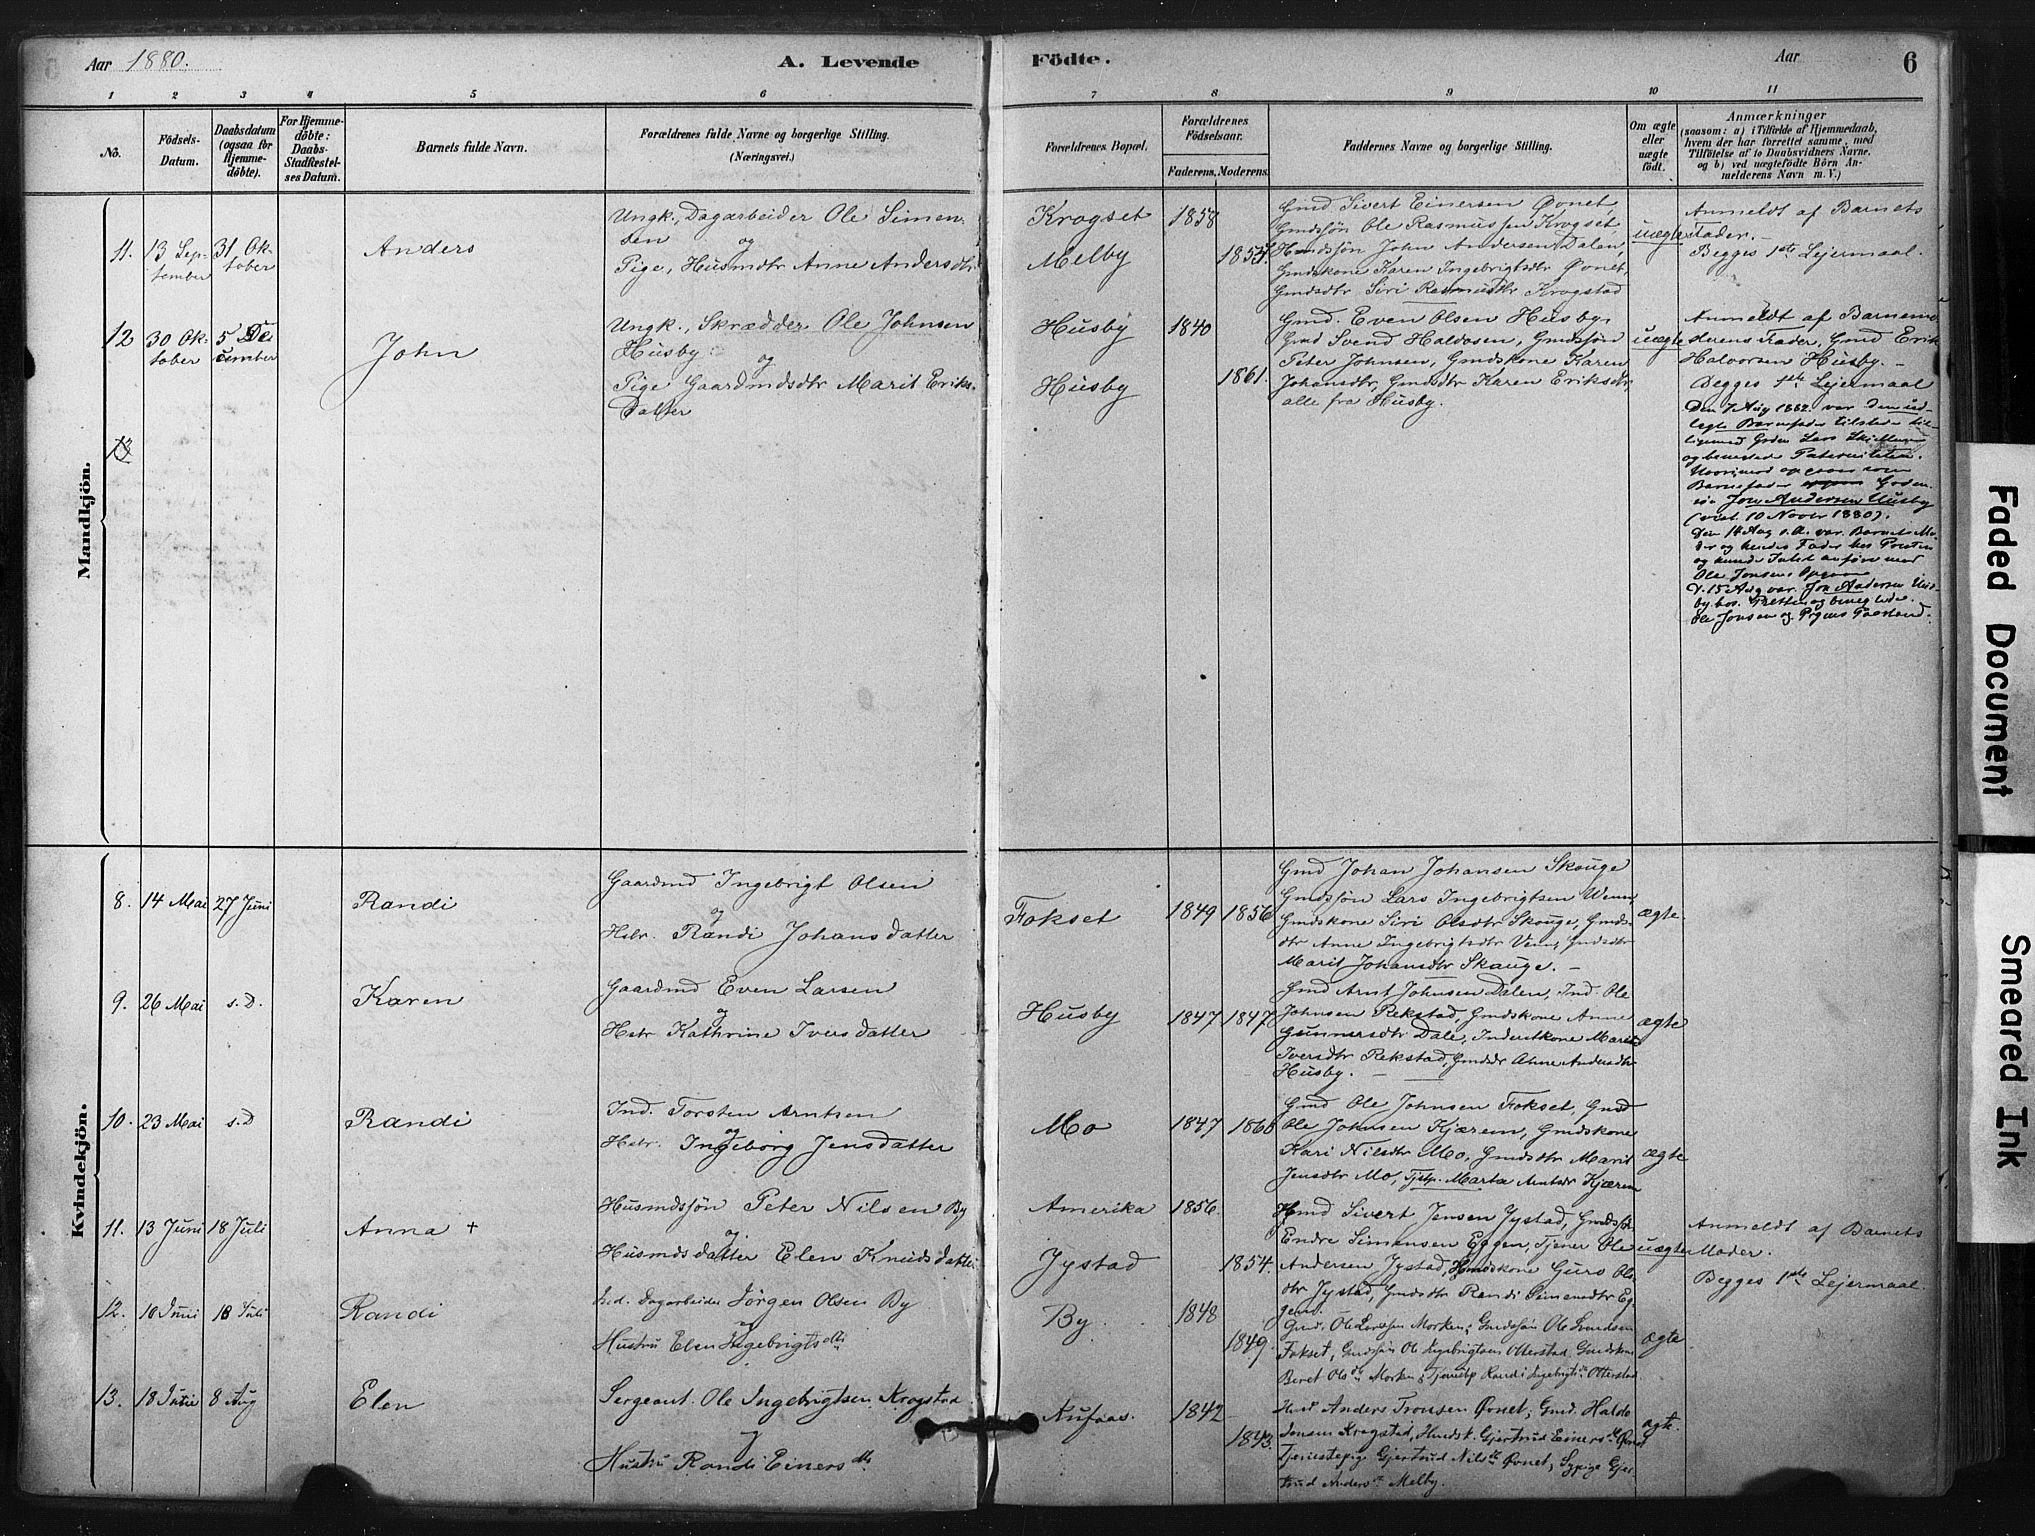 Aar 1880.
A. Levende
Födte.
Aar
6
1 2 3 4 5 6 7 8 9 10 11
No.
Födsels-Datum.
Daabsdatum (ogsaa for Hjemme-döbte).
For Hjemme-döbte: Daabs-Stadfæstel-ses Datum.
Barnets fulde Navn.
Forældrenes fulde Navne og borgerlige Stilling.
(Næringsvei.)
Forældrenes Bopæl.
Forældrenes Födselsaar.
Faderens. Moderens.
Faddernes Navne og borgerlige Stilling.
Om ægte eller uægte födt.
Anmærkninger
(saasom: a) i Tilfælde af Hjemmedaab, hvem der har forrettet samme, med Tilföielse af to Daabsvidners Navne, og b) ved uægtefödte Börn An-melderens Navn m. V.)
Mandkjön.
11. 13 Sep-tember
31 Ok-tober
Anders
Ungk., Dagarbeider Ole Simen-
sen og
Pige, Husmdtr Anne Andersdtr
Krogset
Melby
1858
Gmd. Sivert Einersen Øvnet,
Gmdssøn Ole Rasmussen Krogset,
Hmdssøn John Andersen Dalen,
Gmdskone Karen Ingebrigtsdtr Øvnet,
Gmdsdtr Siri Rasmusdtr Krogstad
uægte
Anmeldt af Barnets
Fader.
Begges 1ste Lejermaal.
12 30 Ok-tober
5 December
John
Ungk., Skrædder Ole Johnsen
Husby og
Pige Gaardmdsdtr Marit Eriks-
Datter
Husby
Husby
1840
1861.
Gmd. Even Olsen Husby,
Gmd Svend Haldosen, Gmdssøn
Peter Johnsen, Gmdskone Karen
Johansdtr, Gmdsdtr Karen Eriksdtr,
alle fra Husby.
uægte
Anmeldt af Barnemo-
derens Fader, Gmd Erik
Halvorsen Husby. –
Begges 1ste Lejermaal
Den 7 Aug 1882 var den ud-
lagte Barnefader tilstede til-
ligemed Gmden Lars
og benegtede Paterniteten.
Hvorimod opgaves som
Barnefader Gmden
Jon Andersen Husby
10 Novbr 1880).
Den 14 Aug s.A. var Barnets Mo-
der og hendes Fader hos Presten
og kunde Intet anføre mod
Ole Jonsens Opgave
D. 15 Aug var Jon Andersen Hus-
by hos Presten og benegtede
Ole Jonsen og Pigens Paastand.
13
Kvindekjön.
8. 14 Mai
27 Juni
Randi
Gaardmd Ingebrigt Olsen
og
Hstr. Randi Johansdatter
Fokset
1849 1856
Gmd Johan Johansen Skauge
Gmdssøn Lars Ingebrigtsen Wenn,
Gmdskone Siri Olsdtr Skauge, Gmds-
dtr Anne Ingebrigtsdtr Venn, Gmdsdtr
Marit Johansdtr Skauge. –
ægte.
9. 26 Mai
s. D.
Karen
Gaardmd Even Larsen
og
Hstr Kathrine Iversdatter
Husby
1847 1847
Gmd Arnt Johnsen Dalen, Ind. Ole
Johnsen Rekstad, Gmdskone Anne
Gunnersdtr Dale, Inderstkone Marit
Iversdtr Rekstad, Gmdsdr Anne Andersdtr
Husby. –
ægte
10. 23 Mai
s. D
Randi
Ind. Torsten Arntsen
og
Hstr. Ingeborg Jensdatter
Mo
1847 1860
Gmd Ole Johnsen Fokset, Gmd
Ole Johnsen Kjærem, Gmdskone
Kari Nilsdtr Mo, Gmdsdtr Marit
Jensdtr Mo, Tjstp. Marta Arntsdr Kjærem
ægte
11. 13 Juni
18 Juli
Anna +
Husmdssøn Peter Nilsen By
og.
Husmdsdatter Elen Knudsdatter
Amerika
Jystad
1856.
1854.
Hmd Sivert Jensen Jystad, Gmdssøn
Endre Simensen Eggen, Tjener Ole
Andersen Jystad, Hmdskone Guro Ols-
dtr Jystad, Gmdsdtr Randi Simensdtr Eg-
gen.
uægte
Anmeldt af Barnets
Moder.
Begges 1ste Lejermaal.
12. 10 Juni
18 Juli
Randi
Ind. Dagarbeider Jörgen Olsen By
og
Hustru Elen Ingebrigtsdtr
By.
1848
1849.
Gmd. Ole Larssen Morken; Gmdssøn Ole Svendsen
Fokset, Gmdssøn Ole Ingebrigtsen Otterstad, Gmdskone
Beret Olsdtr Morken; Tjenestep Randi Ingebrigtsdtr Otterstad.
ægte
13. 18
8 Aug
Elen
Sergeant Ole Ingebrigtsen Krogstad
og
Hustru Randi Einersdtr
Aufaas.
1842
1843.
Hmd Anders Tronsen Øvnet; Gmd. Haldo
Jonsen Krogstad, Hmdsk. Gjertrud Einersdtr Øvnet
Tjenestepige Gjertrud Nilsdtr Øvnet; Sypige Gjer-
trud Andersdtr Melby.
ægte.
Faded Document
Smeared Ink